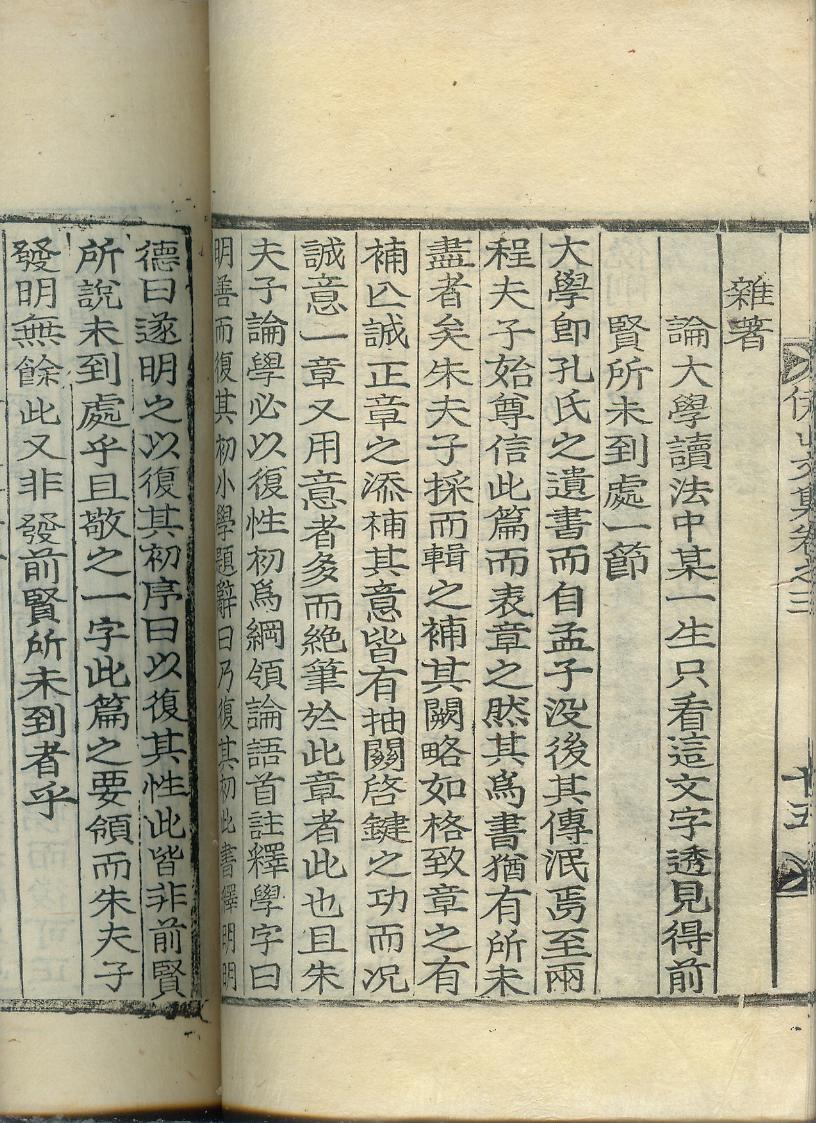 山文集卷之三
十五
雜著
論大學讀法中某一生只看這文字透見得前
賢所未到處一節
大學卽孔氏之遺書而自孟子没後其傳泯焉至兩
程夫子始尊信此篇而表章之然其爲書猶有所未
盡者矣朱夫子採而輯之補其闕略如格致章之有
補亾誠正章之添補其意皆有抽關啓鍵之功而况
誠意一章又用意者多而絶筆於此章者此也且朱
夫子論學必以復性初爲綱領論語首註釋學字曰
明善而復其初小學題辭曰乃復其初此書釋明明
德曰遂明之以復其初序曰以復其性此皆非前賢
所說未到處乎且敬之一字此篇之要領而朱夫子
發明無餘此又非發前賢所未到者乎